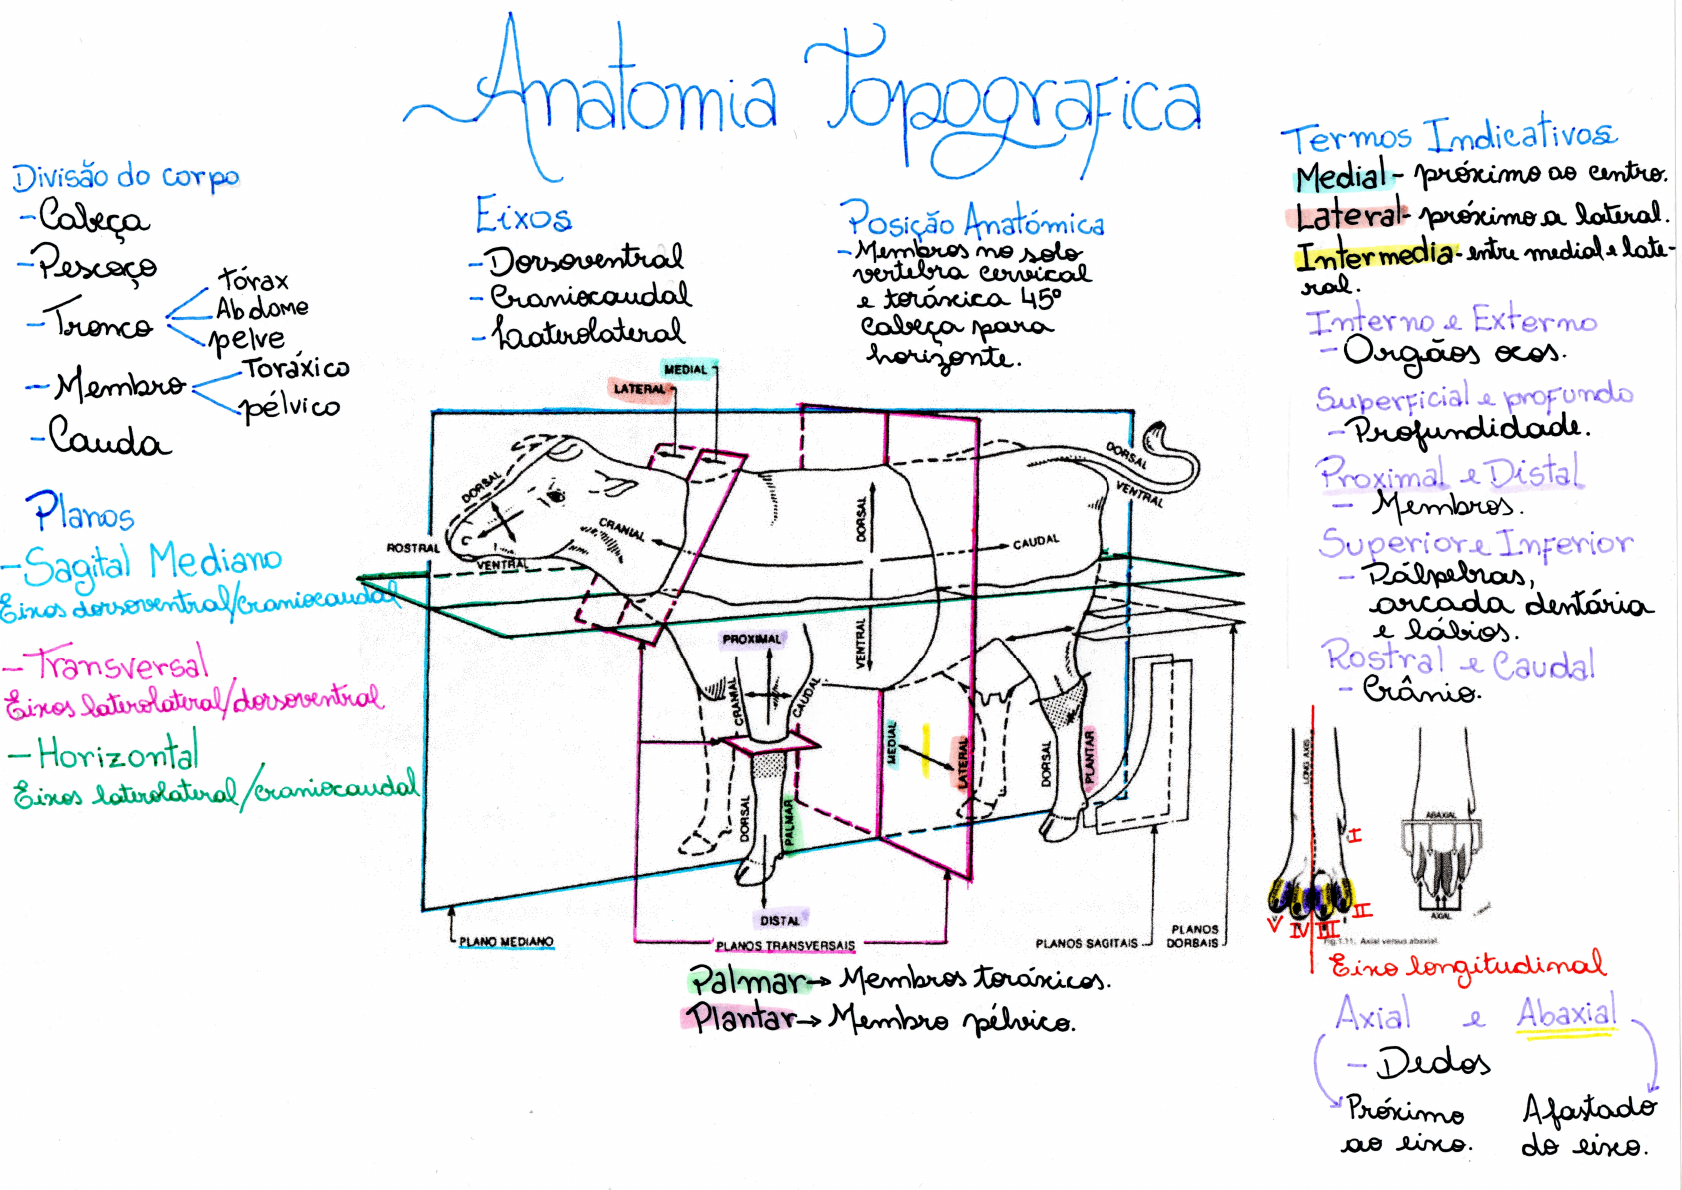 Anatomia Topografica
Divisão do corpo
- Cabeça
- Pescoço
- Tronco
Tórax
Abdome
pelve
- Membro
Toráxico
pélvico
- Cauda
Planos
- Sagital Mediano
Eixos dorsoventral/craniocaudal
- Transversal
Eixos laterolateral/dorsoventral
- Horizontal
Eixos laterolateral/craniocaudal
Eixos
- Dorsoventral
- Craniocaudal
- Laterolateral
Posição Anatómica
- Membros no solo
vertebra cervical
e toráxica 45º
cabeça para
horizonte.
MEDIAL
LATERAL
DORSAL
ROSTRAL
VENTRAL
CRANIAL
DORSAL
VENTRAL
CAUDAL
DORSAL
VENTRAL
PROXIMAL
CRANIAL
CAUDAL
DORSAL
PALMAR
MEDIAL
LATERAL
DORSAL
PLANTAR
DISTAL
PLANO MEDIANO
PLANOS TRANSVERSAIS
PLANOS SAGITAIS
PLANOS
DORBAIS
Palmar → Membros toráxicos.
Plantar → Membro pélvico.
Termos Indicativos
Medial - próximo ao centro.
Lateral - próximo a lateral.
Intermedia - entre medial e late-
ral.
Interno e Externo
- Orgãos ocos.
Superficial e profundo
- Profundidade.
Proximal e Distal
- Membros.
Superior e Inferior
- Pálpebras,
arcada dentária
e lábios.
Rostral e Caudal
- Crânio.
LONG AXIS
I
II
III
IV
V
ABAXIAL
AXIAL
Fig.1.11. Axial versus abaxial.
Eixo longitudinal
Axial e Abaxial
- Dedos
Próximo
ao eixo.
Afastado
do eixo.